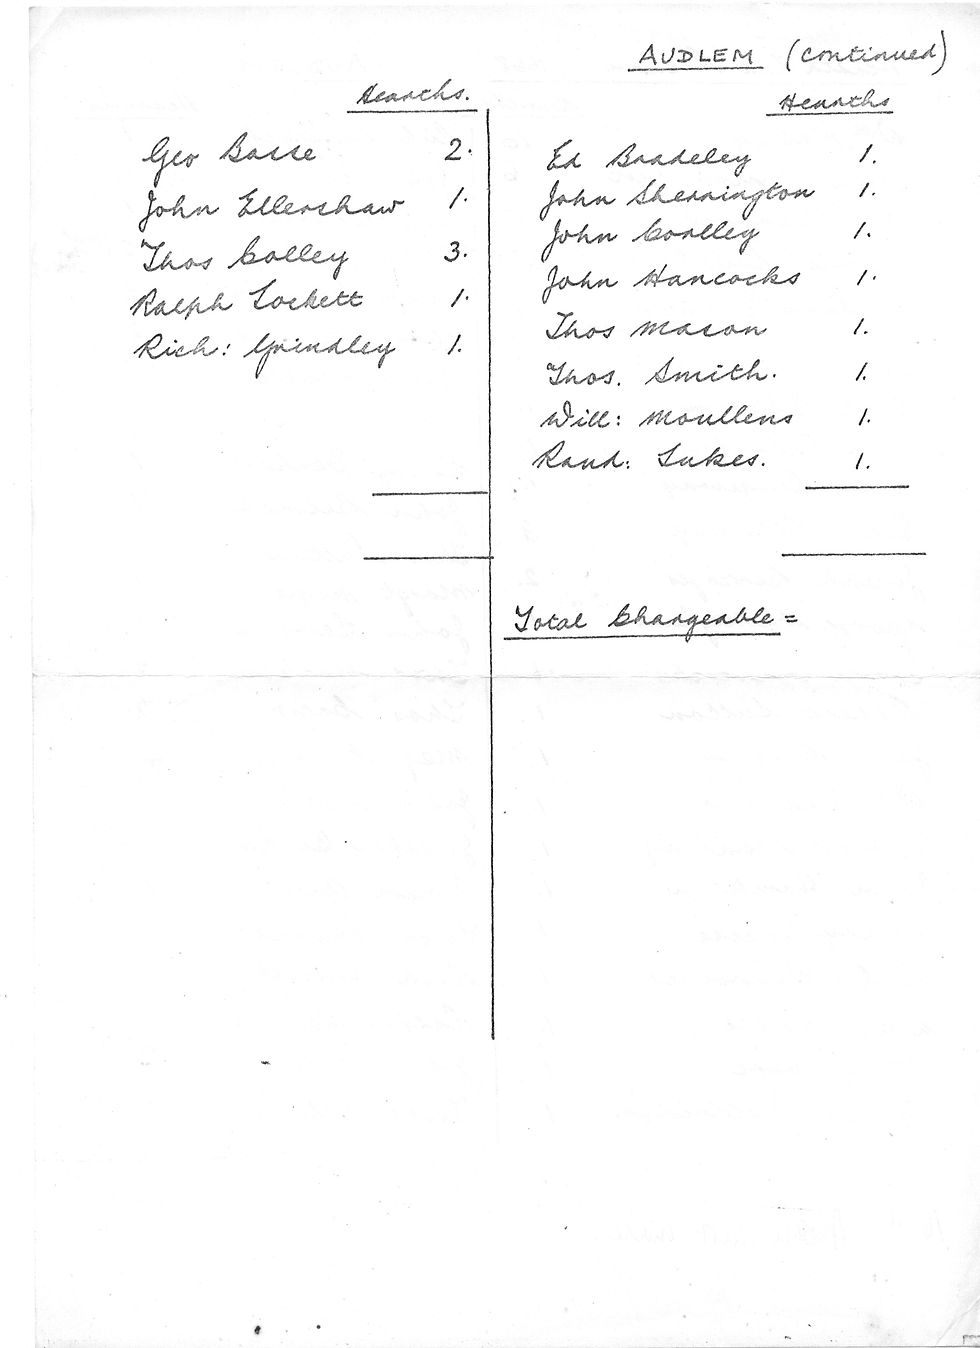 AUDLEM (continued)
Hearths.
Geo Basse 2.
John Ellershaw 1.
Thos Colley 3.
Ralph Lockett 1.
Rich: Grindley 1.
Hearths
Ed Baddeley 1.
John Sherrington 1.
John Coalley 1.
John Hancocks 1.
Thos Mason 1.
Thos. Smith. 1.
Will: Moullens 1.
Rand: Lukes. 1.
Total Chargeable =